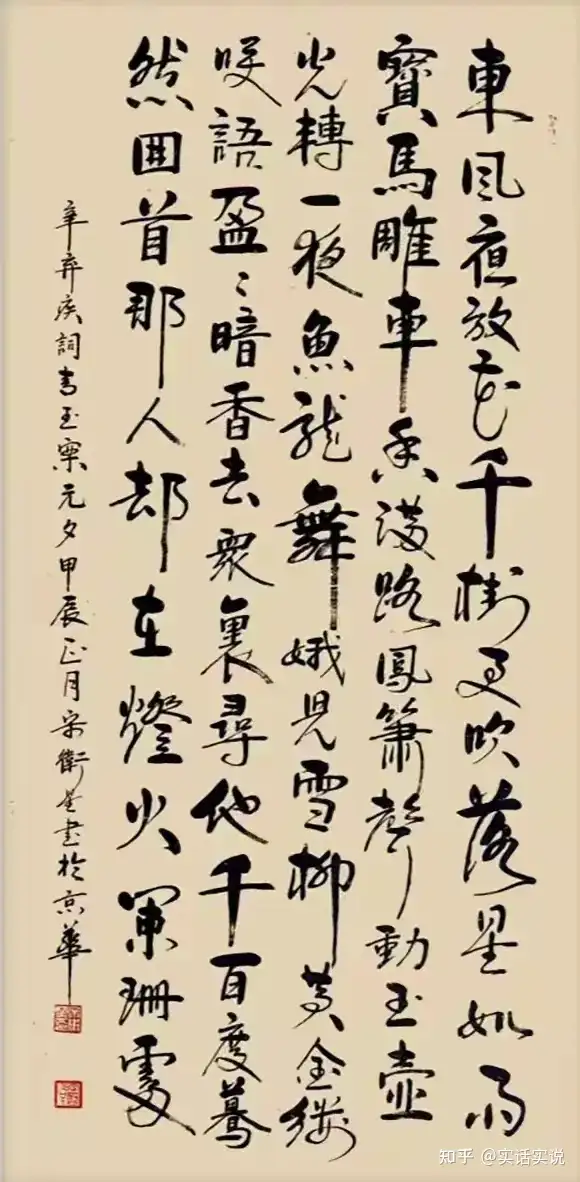 東風夜放花千樹更吹落星如雨
寶馬雕車香滿路鳳簫聲動玉壺
光轉一夜魚龍舞娥兒雪柳黃金縷
笑語盈〻暗香去衆裏尋他千百度驀
然回首那人却在燈火闌珊處
辛弃疾詞青玉案元夕甲辰正月宋衛星書於京華
知乎 @实话实说